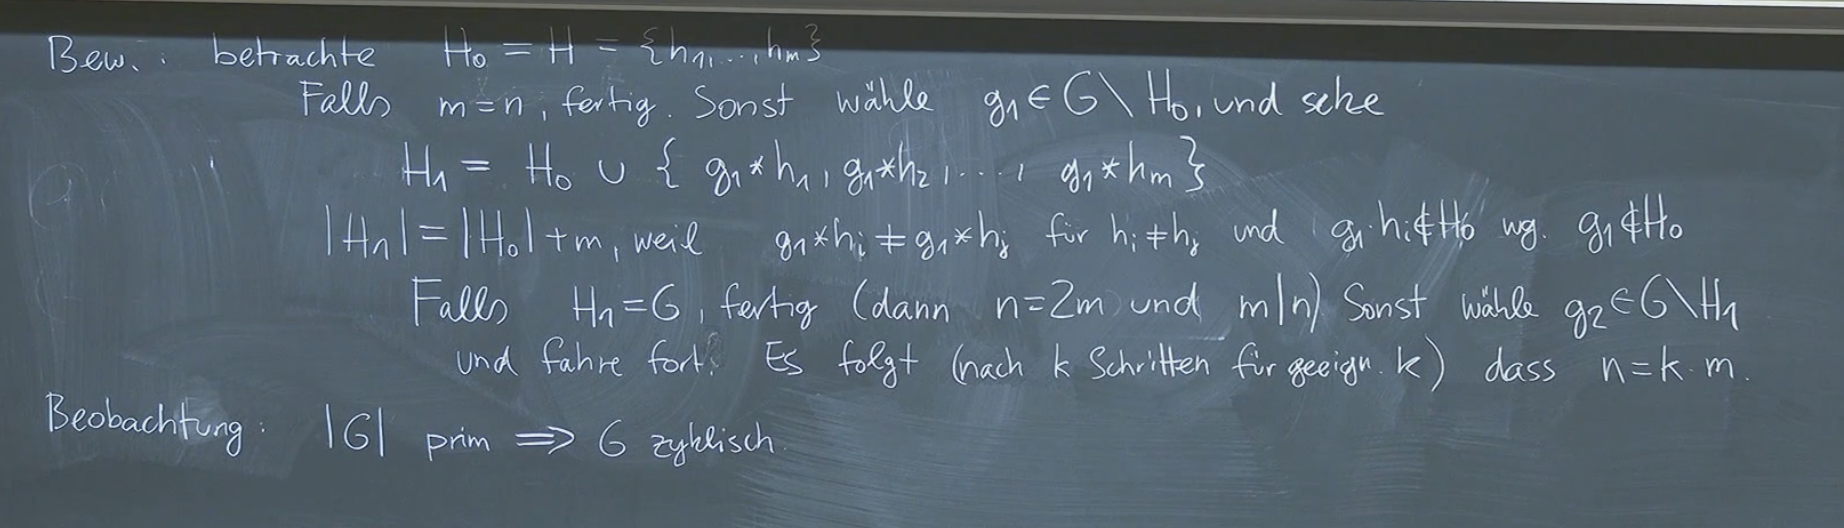 Bew.: betrachte H₀ = H = {h₁,...,hₘ}
Falls m=n, fertig. Sonst wähle g₁ ∈ G \ H₀, und setze
H₁ = H₀ ∪ { g₁*h₁, g₁*h₂, ..., g₁*hₘ}
|H₁| = |H₀|+m, weil g₁*hᵢ ≠ g₁*hⱼ für hᵢ≠hⱼ und g₁·hᵢ∉H₀ wg. g₁∉H₀
Falls H₁=G, fertig (dann n=2m und m|n) Sonst wähle g₂∈G\H₁
und fahre fort. Es folgt (nach k Schritten für geeign. k) dass n=k·m.
Beobachtung: |G| prim ⟹ G zyklisch.